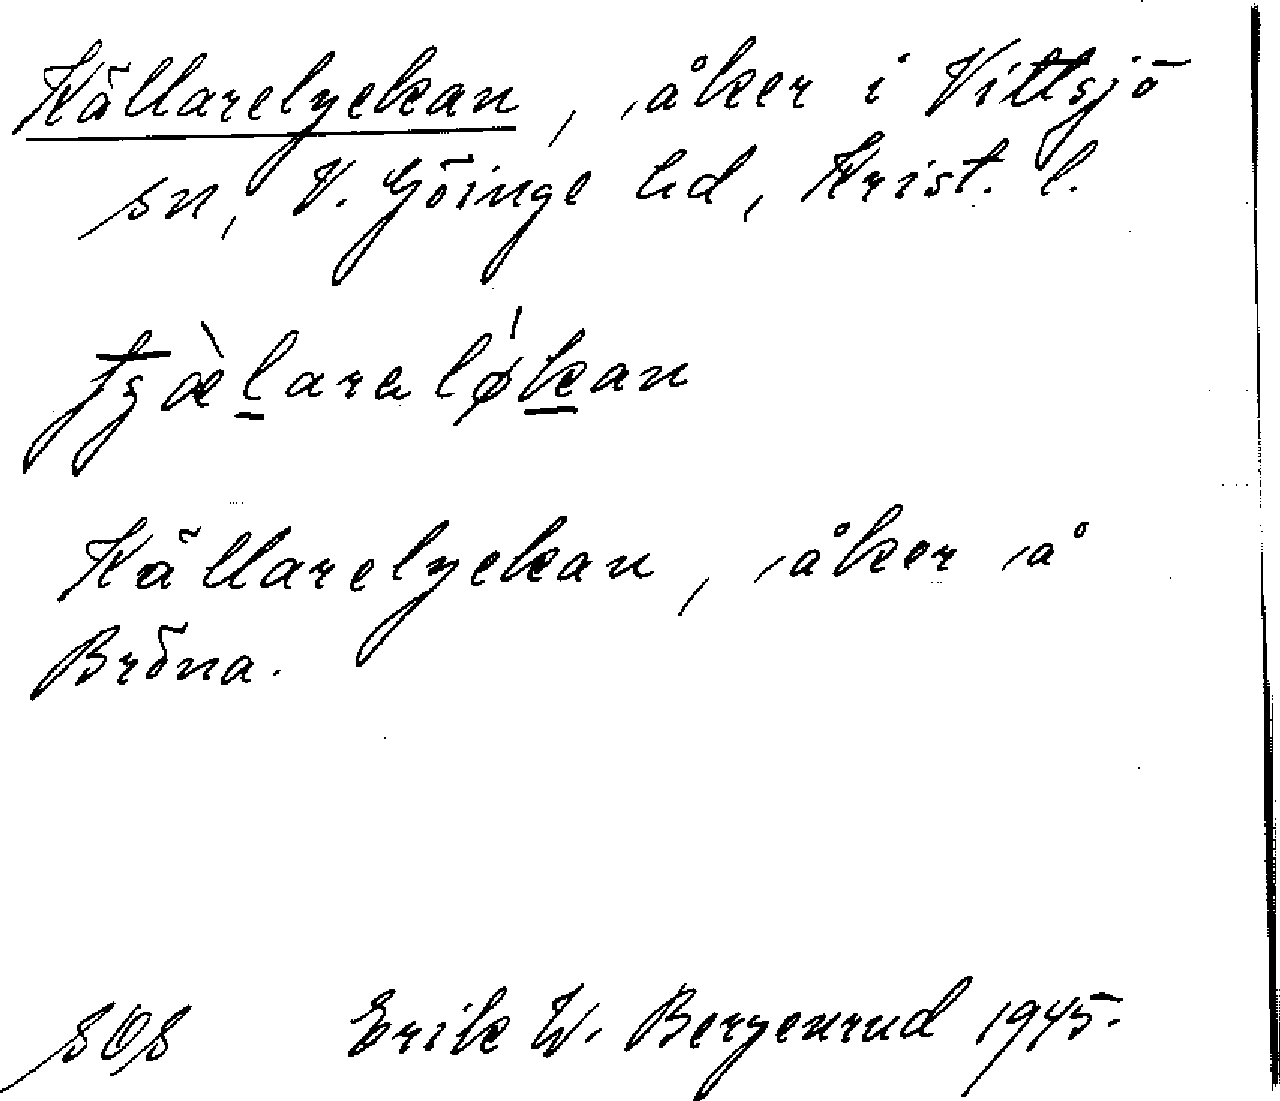 Källarelyckan, åker i Vittsjö
sn, V. Göinge hd, Krist. l.
ɟȝæ̀larɐløkan
Källarelyckan, åker å
Bröna.
SOS Erik W. Bergenrud 1945.